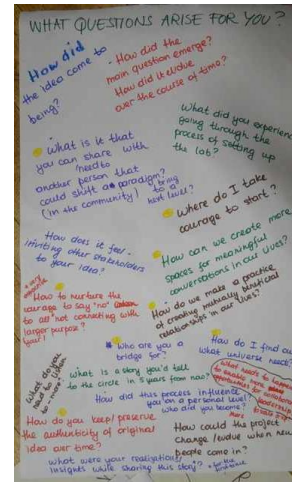 WHAT QUESTIONS ARISE FOR YOU?
How did
the idea come to
being?
- How did the
main question emerge?
How did it evolve
over the course of time?
What did you experience
going through the
process of setting up
the lot?
What is it that
you can share with
/need to
another person that
could shift a paradigm?
(in the community)
/bring
to a
next level?
Where do I take
courage to start?
How does it feel -
inviting other stakeholders
to your idea?
How can we create more
spaces for meaningful
conversations in our lives?
How to nurture the
courage to say "no"
to all "not connecting with
larger purpose"?
How do we make a practice
of creating mutually beneficial
relationships in our lives?
Who are you a
bridge for?
How do I find out
what universe needs?
what do you
need to listen
to - more?
what is a story you'd tell
to the circle in 5 years from now?
what needs to happen
to enable more
opportunities for
How did this process influence
you on a personal level?
who did you become?
How do you keep/preserve
the authenticity of original
idea over time?
How could the project
change/evolve when new
people come in?
what were your realizations/
insights while sharing this story?